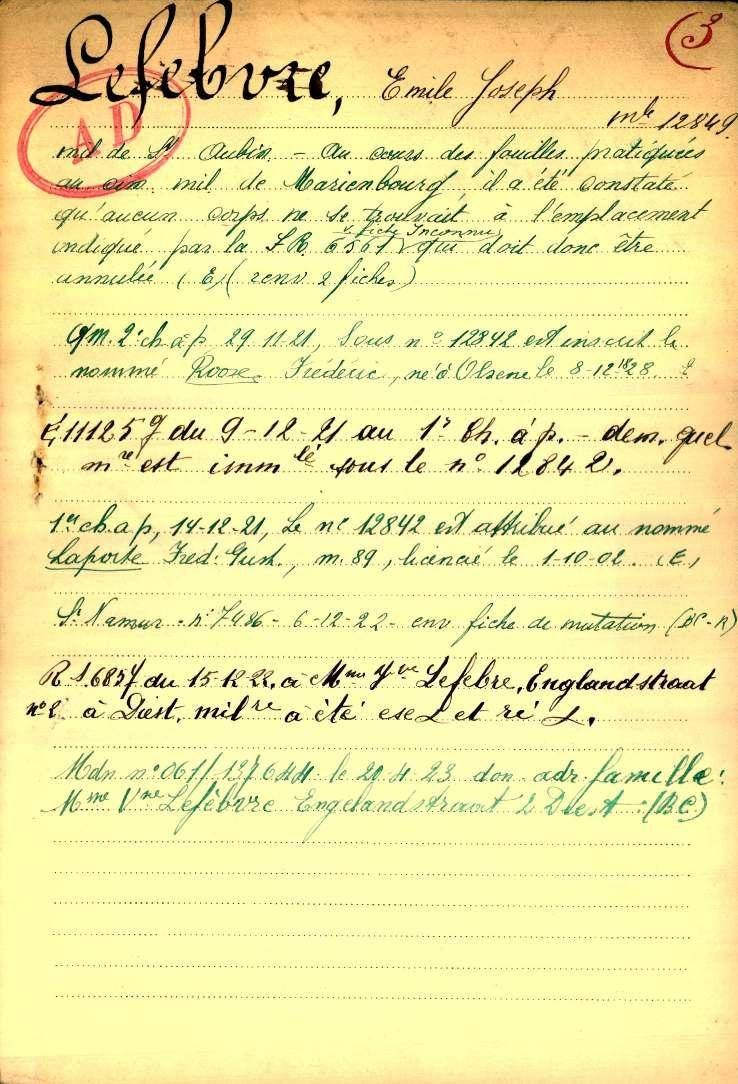 3
Lefebvre, Emile Joseph
mle 12849
A.D
mil de St Aubin - Au cours des fouilles pratiquées
au cim mil de Marienbourg, il a été constaté
qu'aucun corps ne se trouvait à l'emplacement
v. fiche Inconnu
indiqué par la F.R. 6561 qui doit donc être
annulée (E) (renv 2 fiches)
2e ch. à p 29-11-21, Sous n° 12842 est inscrit le
nommé Roose Frédéric, né à Olsene le 8-12-1828.
E 11125 g du 9-12-21 au 1r Ch. à p. - dem. quel
mre est imm lé sous le n° 12842.
1er ch. a p, 14-12-21, Le n° 12842 est attribué au nommé
Laporte Fred. Gust., m. 89, licencié le 1-10-02. (E)
St Namur - n° 7486 - 6-12-22 - env fiche de mutation (BC-R)
R S.6857 du 15-12-22, à Mme Vve Lefebre, Englandstraat
n° 2 à Diest, milre a été ex et ré
Mdn n° 061/137644 le 20-4-23 don. adr. famille:
Mme Vve Lefèbvre Engelandstraat 2 Diest. (BC)